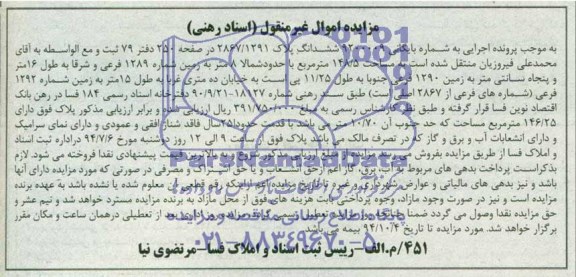 مزایده اموال غیرمنقول (اسناد رهنی)
به موجب پرونده اجرایی به شماره بایگانی ششدانگ پلاک ۲۸۶۷/۱۲۹۱ در صفحه ۲۵۰ دفتر ۷۹ ثبت و مع الواسطه به آقای
محمدعلی فیروزیان منتقل شده است به مساحت ۱۴۸/۵ مترمربع با حدود شمالا متر به زمین شماره ۱۲۸۹ فرعی و شرقا به طول ۱۶متر
و پنجاه سانتی متر به زمین ۱۲۹۰ فرعی جنوبا به طول ۱۱/۲۵ پی است به خیابان ده متری غربا به طول ۱۵متر به زمین شماره ۱۲۹۲
فرعی (شماره های فرعی از ۲۸۶۷ اصلی است) طبق سند رهنی شماره ۱۸۱۲۷-۹۰/۹/۲۱ دفترخانه اسناد رسمی ۱۸۴ فسا در رهن بانک
اقتصاد نوین فسا قرار گرفته و طبق نظر کارشناس رسمی به مبلغ ۲۹۱/۷۵۰/۰۰۰ ریال ارزیابی شده و برابر ارزیابی مذکور پلاک فوق دارای
۱۴۶/۲۵ مترمربع مساحت که حد جنوب آن ۱۰/۷۰ متر می باشد با قدمت حدود ۲۵سال فاقد شناژ افقی و عمودی و دارای نمای سرامیک
و دارای انشعابات آب و برق و گاز که در تصرف مالک می باشد پلاک فوق از ساعت ۹ الی ۱۲ روز دوشنبه مورخ ۹۴/۷/۶ در اداره ثبت اسناد
و املاک فسا از طریق مزایده بفروش میرسد مزایده از مبلغ ارزیابی شروع و به بالاترین قیمت پیشنهادی نقدا فروخته می شود. لازم
بذکراست پرداخت بدهی های مربوط به آب، برق، گاز اعم از حق انشعاب و یا حق اشتراک و مصرفی در صورتی که مورد مزایده دارای آنها
باشد و نیز بدهی های مالیاتی و عوارض شهرداری و غیره تا تاریخ مزایده اعم از اینکه رقم قطعی آن معلوم شده یا نشده باشد به عهده برنده
مزایده است و نیز در صورت وجود مازاد، وجوه پرداختی بابت هزینه های فوق از محل مازاد به برنده مزایده مسترد خواهد شد و نیم عشر و
حق مزایده نقدا وصول می گردد ضمنا چنانچه روز مزایده تعطیل رسمی گردد مزایده روز اداری بعد از تعطیلی درهمان ساعت و مکان مقرر
برگزار خواهد شد. مورد مزایده تا تاریخ ۹۴/۱۰/۴ بیمه می باشد.
۴۵۱/م.الف-رییس ثبت اسناد و املاک فسا-مرتضوی نیا